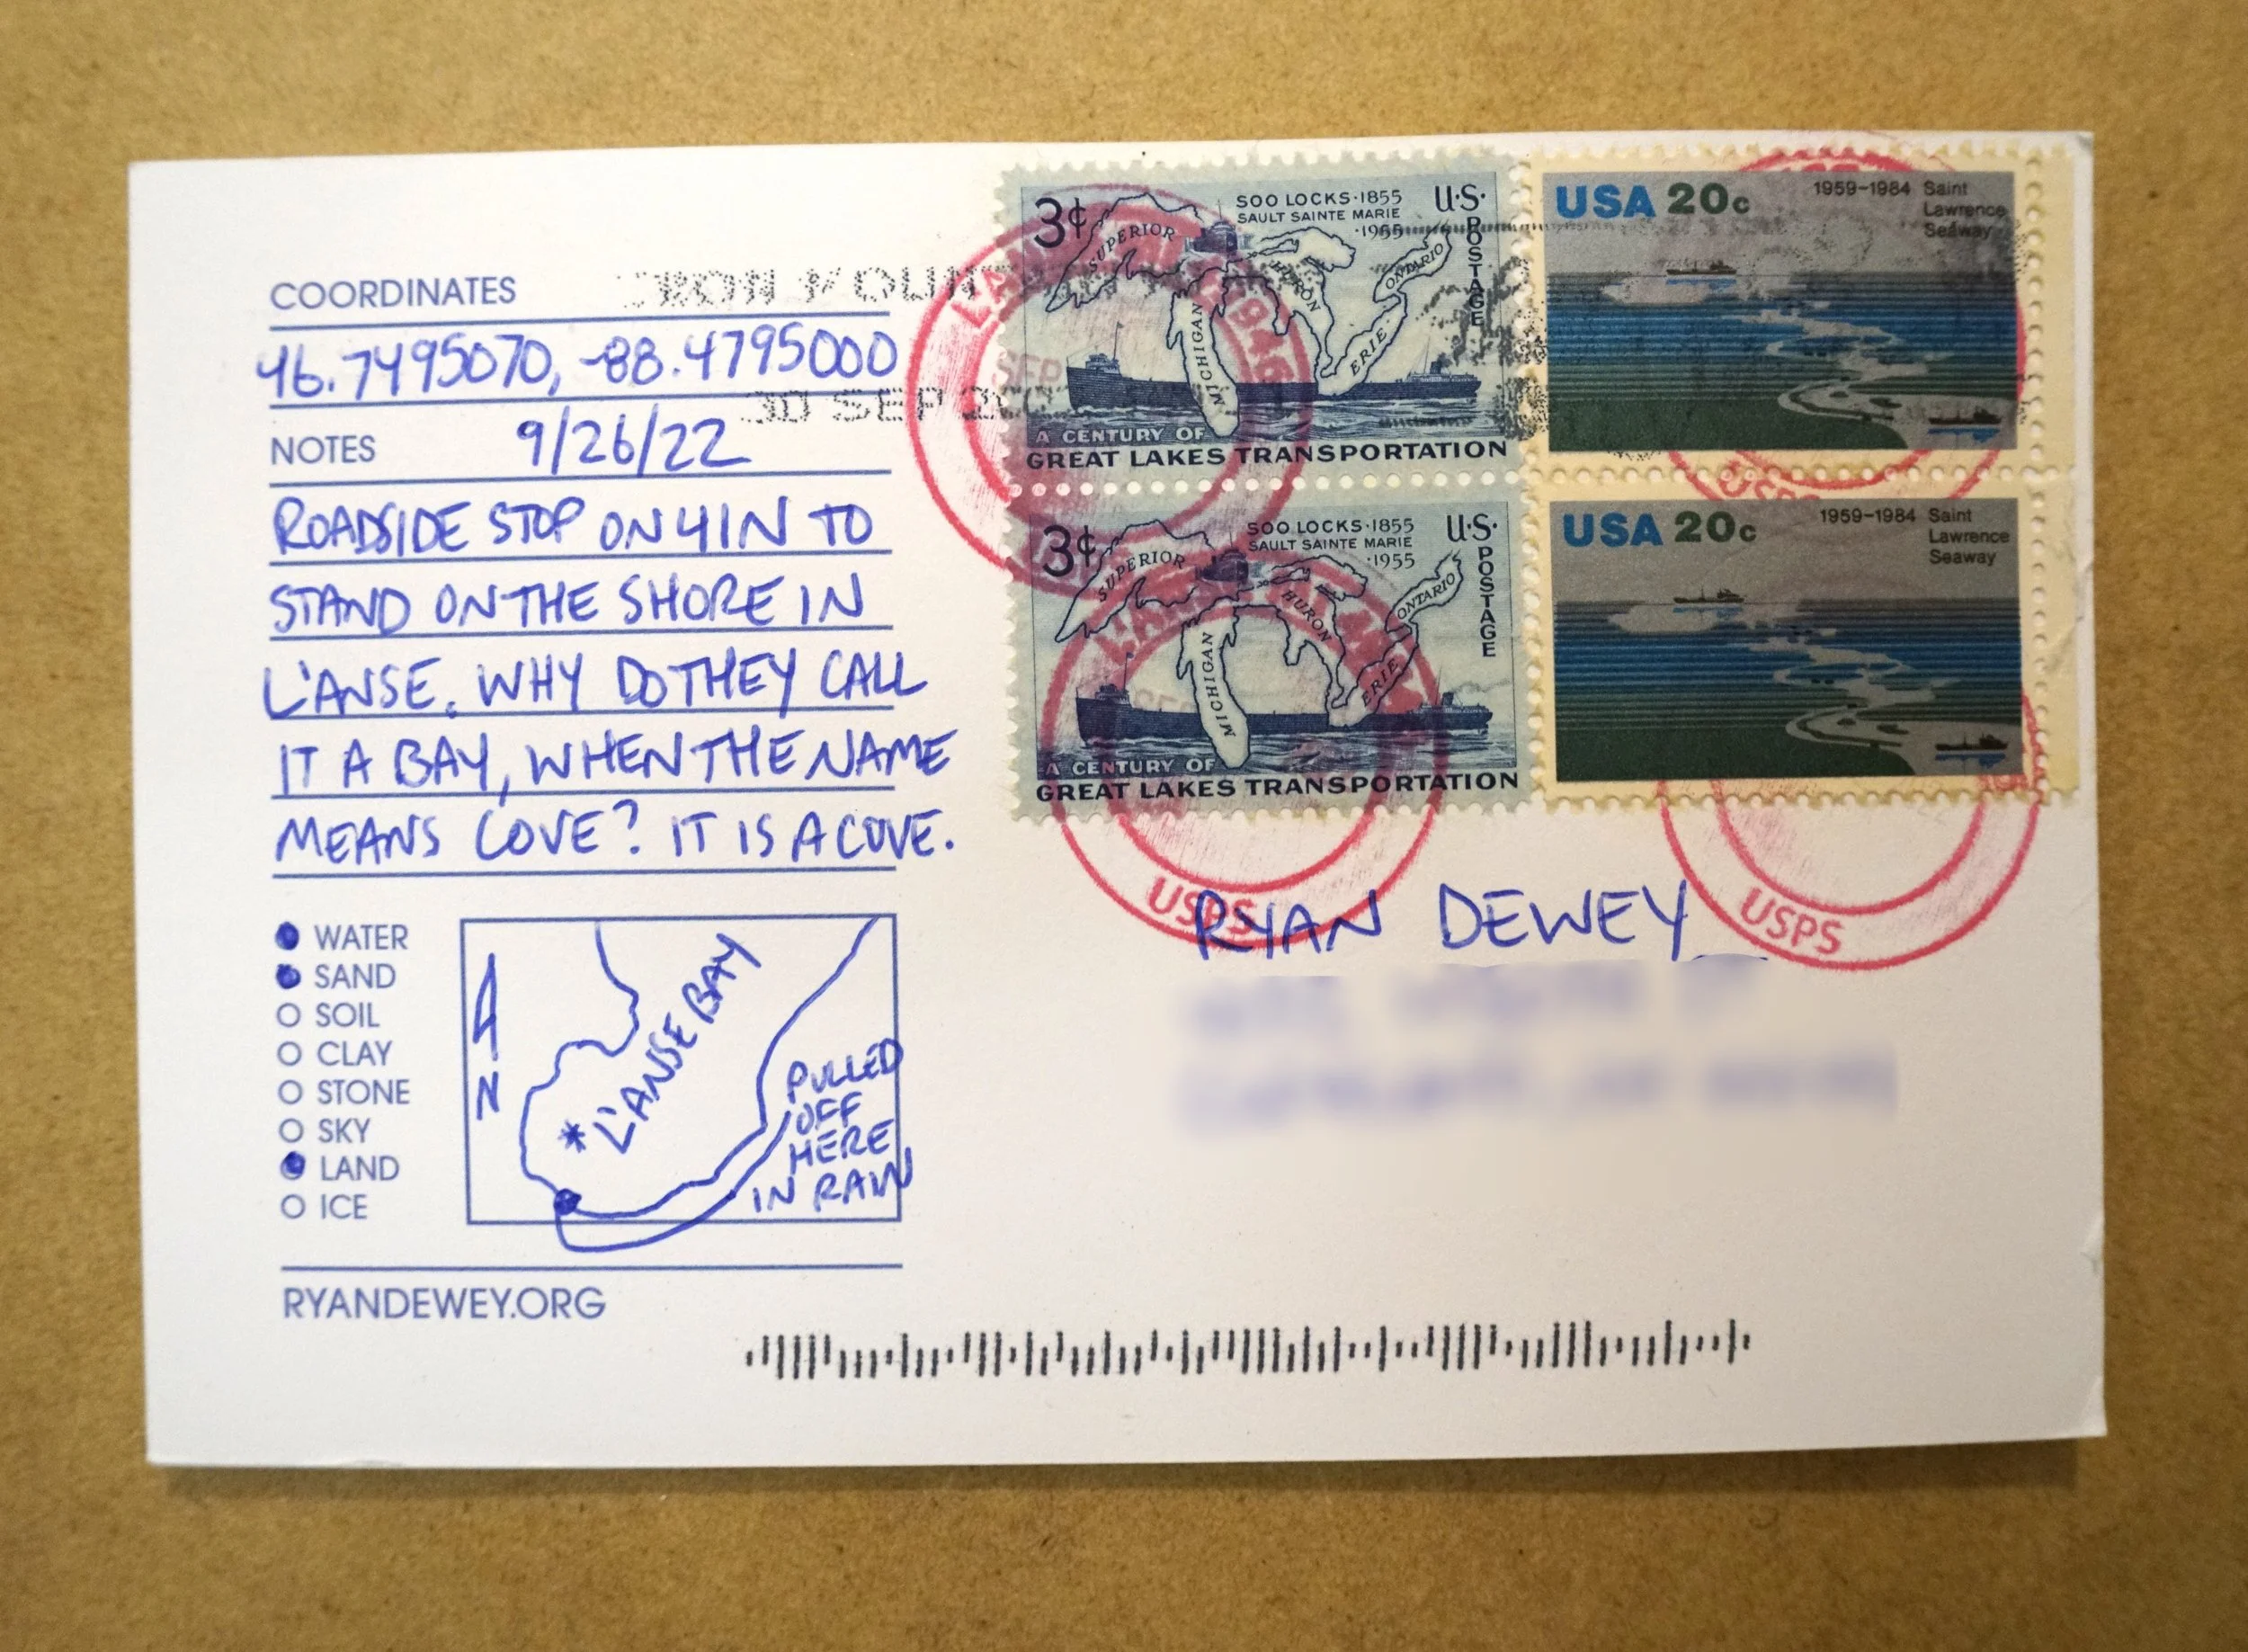 COORDINATES
46.7495070, -88.4795000
NOTES 9/26/22
ROADSIDE STOP ON 41N TO
STAND ON THE SHORE IN
L'ANSE. WHY DO THEY CALL
IT A BAY, WHEN THE NAME
MEANS COVE? IT IS A COVE.
WATER
SAND
SOIL
CLAY
STONE
SKY
LAND
ICE
N
L'ANSE BAY
PULLED
OFF
HERE
IN RAIN
RYANDEWEY.ORG
30 SEP
3¢
SOO LOCKS·1855
SAULT SAINTE MARIE
·1955
U.S.
POSTAGE
SUPERIOR
MICHIGAN
HURON
ERIE
ONTARIO
A CENTURY OF
GREAT LAKES TRANSPORTATION
USA 20c
1959-1984 Saint
Lawrence
Seaway
3¢
SOO LOCKS·1855
SAULT SAINTE MARIE
·1955
U.S.
POSTAGE
SUPERIOR
MICHIGAN
HURON
ERIE
ONTARIO
A CENTURY OF
GREAT LAKES TRANSPORTATION
USA 20c
1959-1984 Saint
Lawrence
Seaway
SEP
USPS
USPS
USPS
RYAN DEWEY